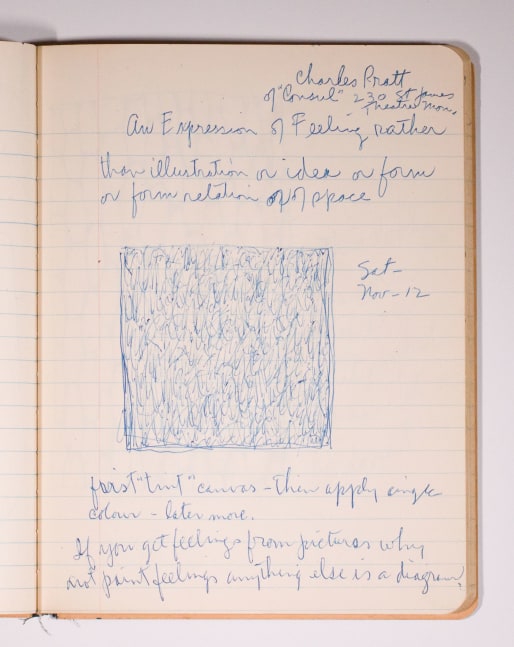 Charles Pratt
of "Consul" 230 St James
Theatre Mon.
An Expression of Feeling rather
than illustration or idea or form
or form relation of space
Sat-
Nov-12
first "tint" canvas - then apply single
colour - later more.
If you get feelings from pictures why
not paint feelings anything else is a diagram?